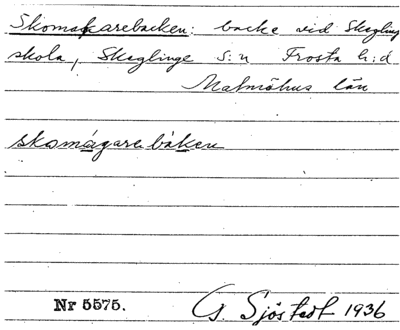 Skomakarebacken: backe vid Skeglinge
skola, Skeglinge s:n Frosta h:d
Malmöhus län
skomágarebákeɴ
Nr 5575.
G. Sjöstedt 1936